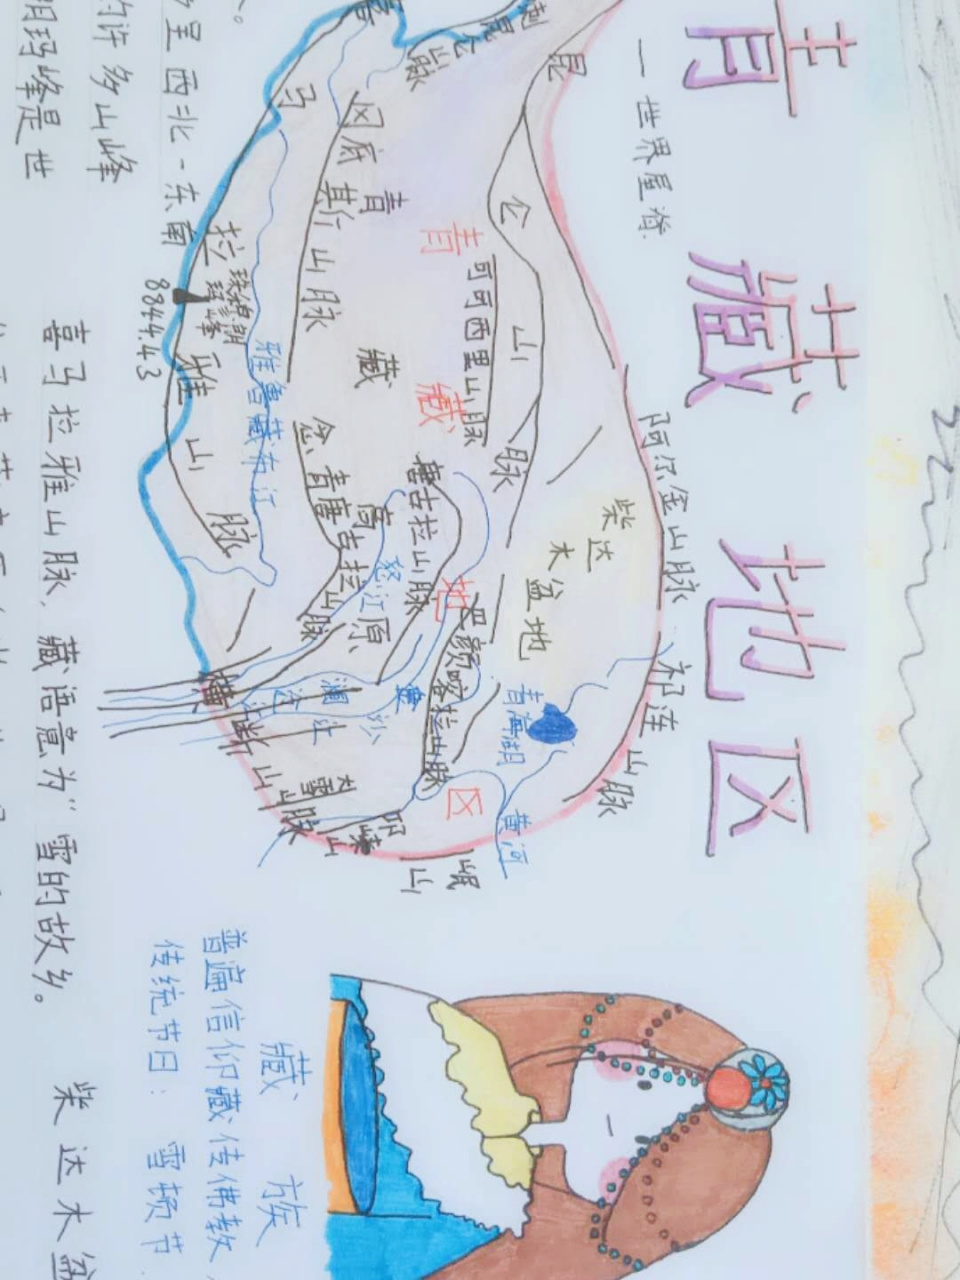 青藏地区
一世界屋脊
昆
仑
山
脉
阿尔金山脉
祁连
山脉
柴达
木
盆地
可可西里山脉
青
藏
地
区
青
藏
高
原
冈底斯山脉
念青唐古拉山脉
唐古拉山脉
巴颜喀拉山脉
青海湖
黄河
怒江
澜
江
雅鲁藏布江
马
拉
雅
山
脉
珠穆朗
玛峰
8844.43
横
断
山
脉
大雪山
邛
崃
山
岷
山
呈西北-东南
的许多山峰
玛峰是世
喜马拉雅山脉,藏语意为"雪的故乡。
柴达木盆
藏族
普遍信仰藏传佛教
传统节日:雪顿节